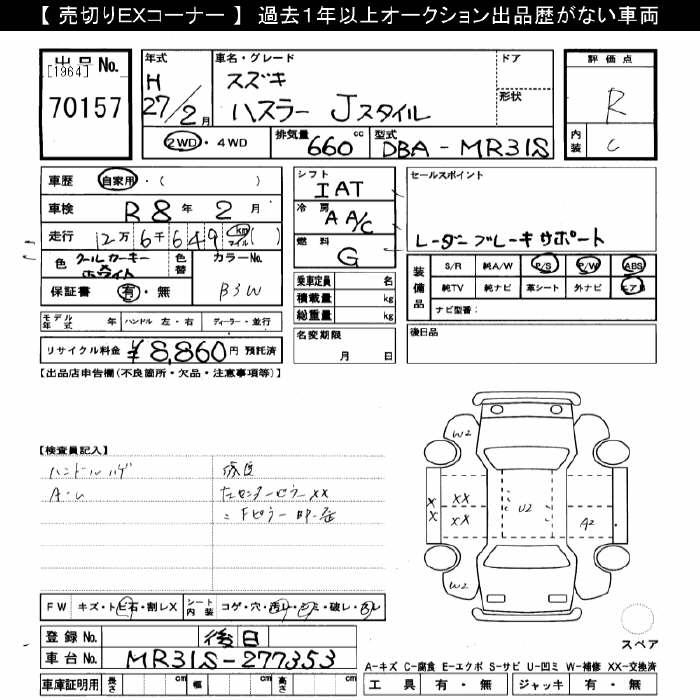 【 売切りEXコーナー 】 過去1年以上オークション出品歴がない車両
出品 No.
[1964]
70157
年式
H
27/2月
車名・グレード
スズキ
ハスラー Jスタイル
ドア
形状
2WD・4WD
排気量
660 cc
型式
DBA-MR31S
評価点
R
内装
C
車歴 自家用・( )
車検 R8年 2月
走行 12万6千649 km マイル ( )
色 クールカーキー ホワイト
色替
カラーNo.
B3W
保証書 有・無
モデル年式 年 ハンドル 左・右 ディーラー・並行
リサイクル料金 ¥8,860円 預託済
シフト
IAT
冷房
AA/C
燃料
G
乗車定員 名
積載量 kg
総重量 kg
名変期限
月 日
セールスポイント
レーダーブレーキサポート
装備品
S/R 純A/W P/S P/W ABS
純TV 純ナビ 革シート 外ナビ エアB
ナビ型番:
後日品
【出品店申告欄(不良箇所・欠品・注意事項等)】
【検査員記入】
ハンドルハゲ
A・U
左センターピラーXX
W2
XX
XX
XX
U2
A2
W2
FW キズ・トビ石・割レX
シート内装 コゲ・穴・汚レ・シミ・破レ・スレ
登録 No. 後日
車台 No. MR31S-277353
車庫証明用 長さ cm 幅 cm 高さ cm
スペア
A-キズ C-腐食 E-エクボ S-サビ U-凹ミ W-補修 XX-交換済
工具 有・無 ジャッキ 有・無